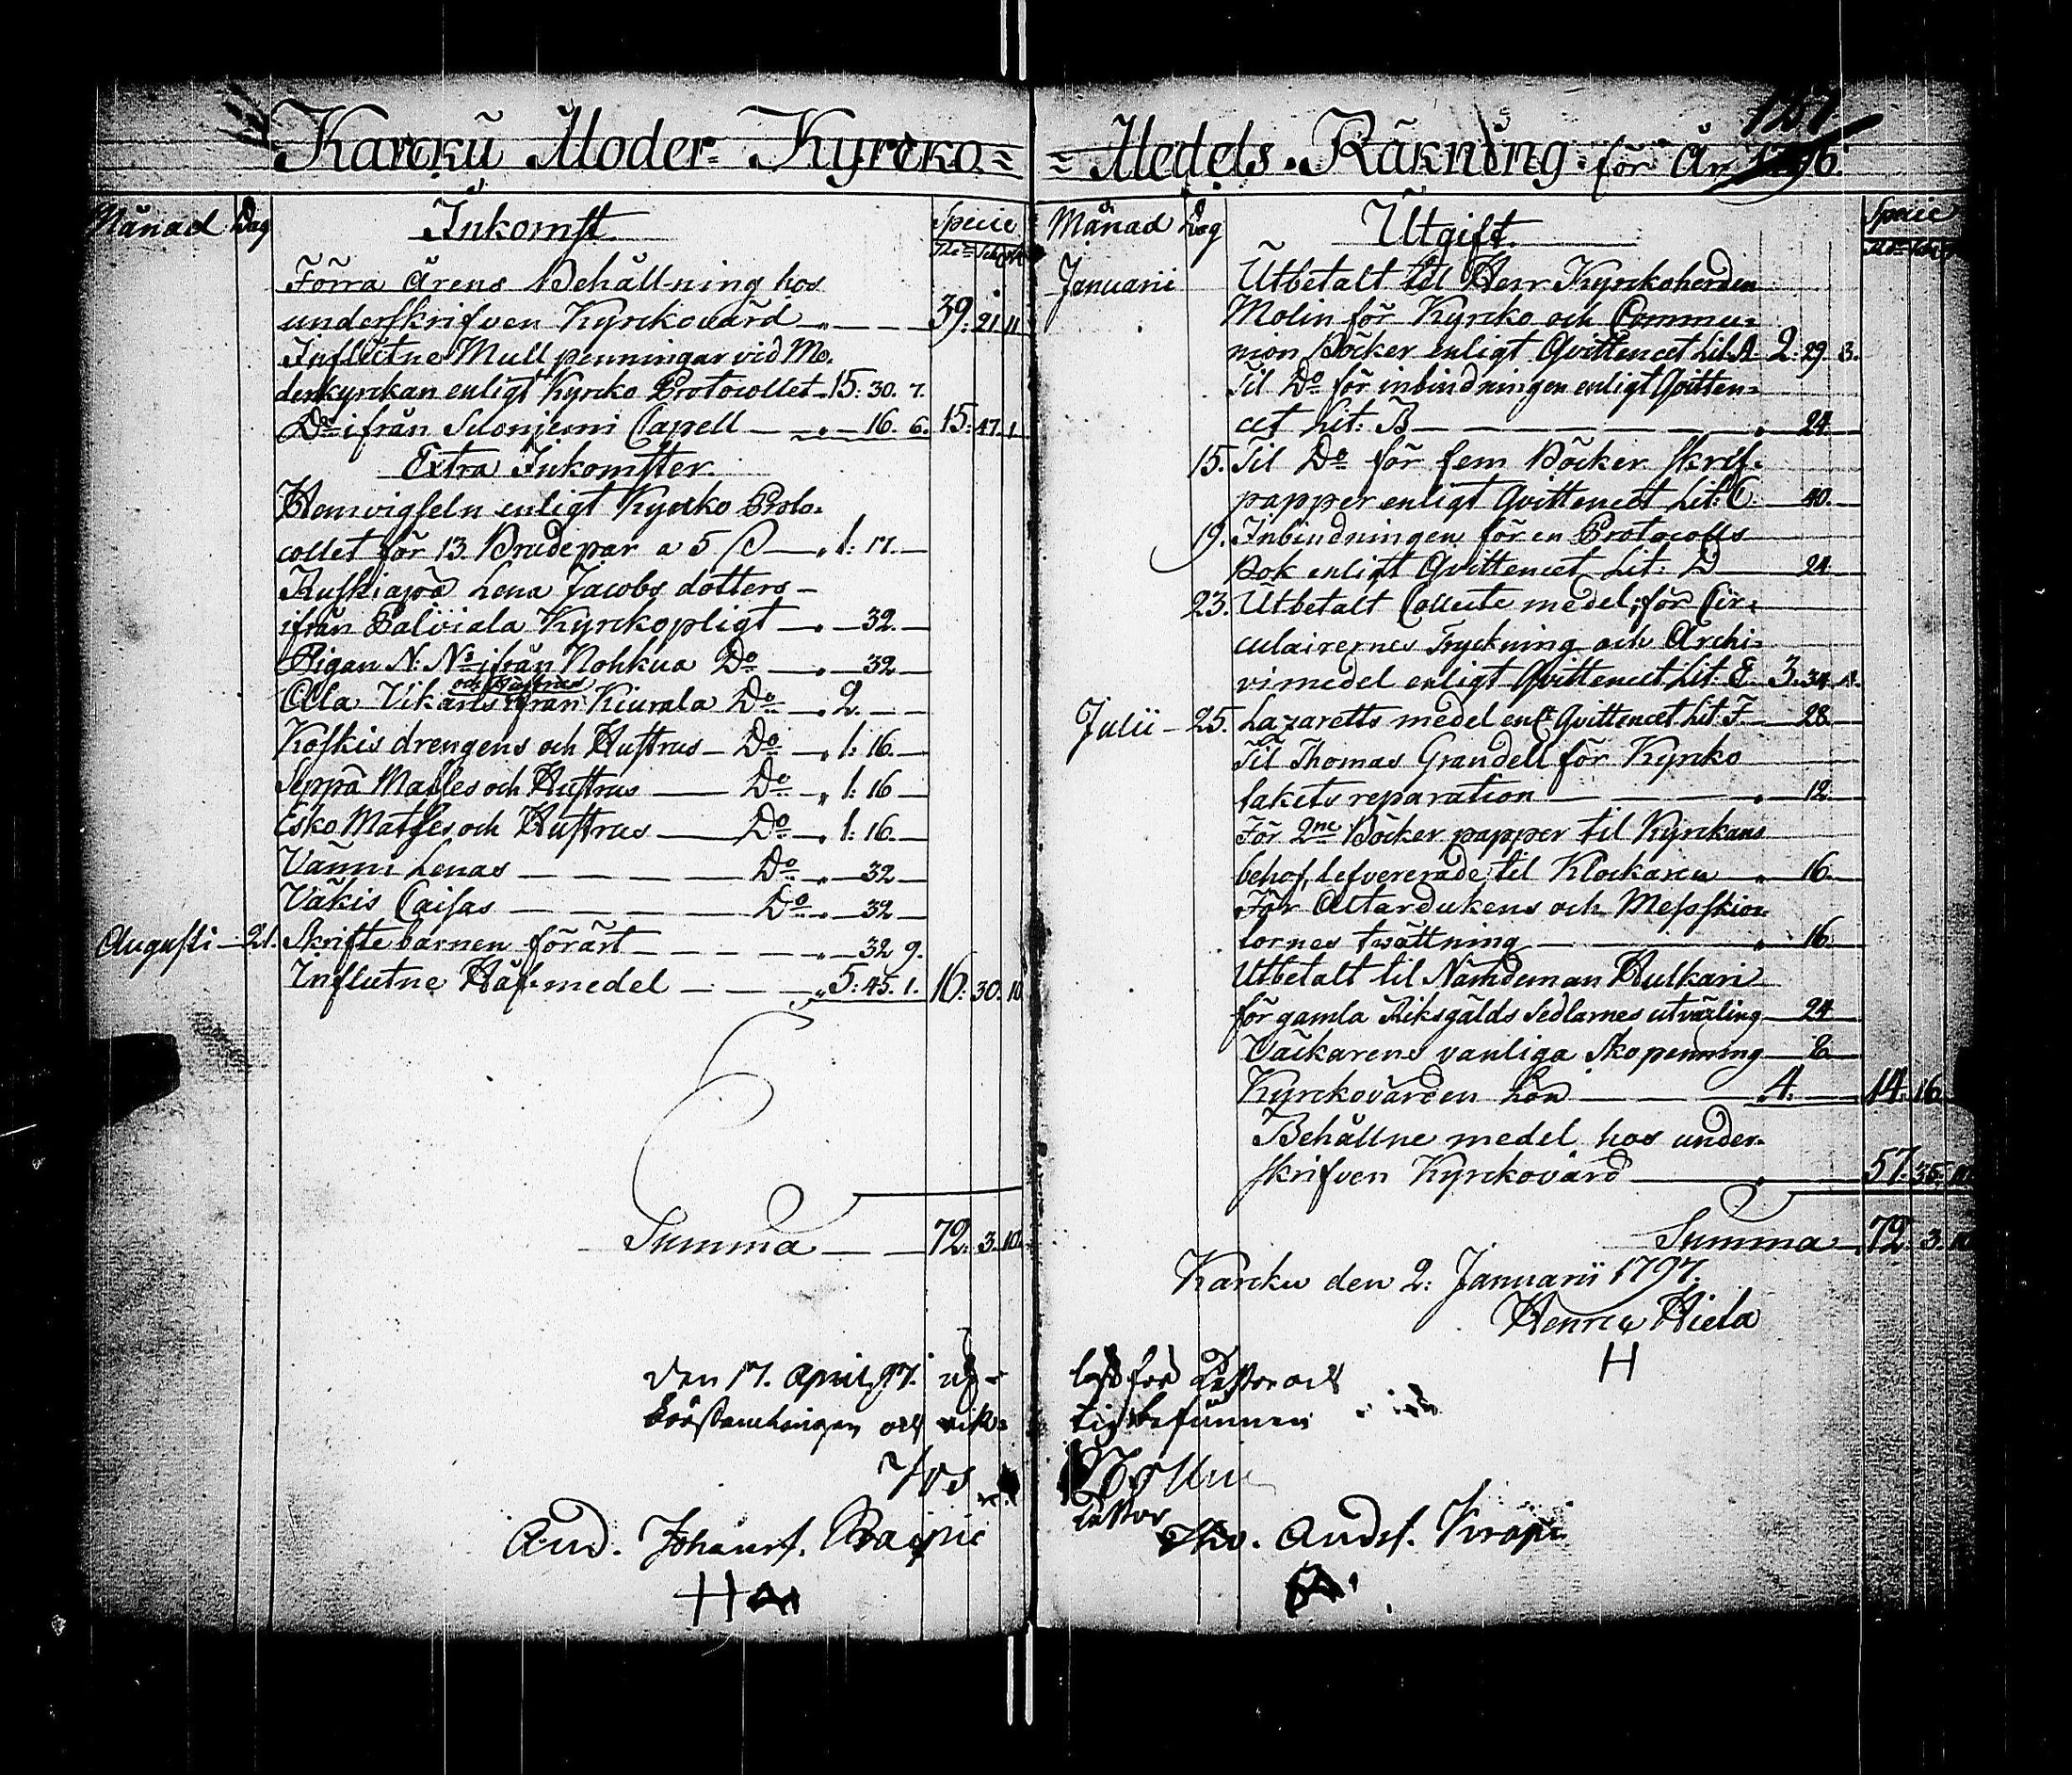 Karcku Moder- Kyrcko=
Månad Dag Inkomst Specie
Rd: Sch: R:
Förra Årens Behållning hos
underskrifven Kyrckovärd 39: 21. 11
Influtne Mullpenningar vid Mo-
derkyrckan enligt Kyrcko Protocollet 15: 30. 7.
Do ifrån Suoniemi Capell 16. 6. 15: 47. 1
Extra Inkomster
Hemvigseln enligt Kyrcko Proto-
collet för 13. Brudepar a 5 ß 1: 17.
Ruskiapä Lena Jacobs dotters
ifrån Palviala Kyrckopligt 32.
Pigan N: Ns ifrån Nohkua Do 32
och Hustrus
Ola Vikaris ifrån Kiurala Do 2.
Koskis drengens och Hustrus Do 1: 16.
Seppä Matses och Hustrus Do 1: 16
Esko Matses och Hustrus Do 1: 16.
Vänni Lenas Do 32
Väkis Caisas Do 32
Augusti 21. Skriftebarnen förärt 32 9.
Influtne Håf-medel 5: 45. 1. 16: 30. 10
Summa 72: 3. 10.
Den 17. April 97. up-
Sockenstämningen och rik-
And. Johansf.
H
=Medels-Räkning för År 1796.
157
Månad Dag Utgift Specie
Januarii Utbetalt til Herr Kyrckoherden
Molin för Kyrcko och Commu-
nion Böcker enligt Qvittencet Lit: A 2: 29. 3.
Til Do för inbindningen enligt Qvitten-
cet Lit: B 24
15. Til Do för fem Böcker skrif-
papper enligt Qvittencet Lit: C 40.
19. Inbindningen för en Protocolls
Bok enligt Qvittencet Lit: D 24
23. Utbetalt Collecte medel, för Cir-
culairernes Tryckning och Archi-
vimedel enligt Qvittencet Lit: E 3.
Julii 25. Lazaretts medel enl. Qvittencet Lit: F 28
Til Thomas Grandell för Kyrcko
takets reparation 12
För 2ne Böcker papper til Kyrckans
behof, lefvererade til Klockaren 16.
För Altardukens och Messkior-
tornes tvättning 16
Utbetalt til Nämdeman Hulkari
för gamla Riksgälds Sedlarnes utväxling 24
Väckarens vanliga Skopenning 8
Kyrckovärden Lön 4. 14: 16
Behållne medel hos under-
skrifven Kyrckovärd 57: 35. 10
Summa 72. 3. 10
Karcku den 2: Januarii 1797.
Henric Hiela
H
läst för Pastor och
tig befunnen
Pastor
Tho. Andsf.